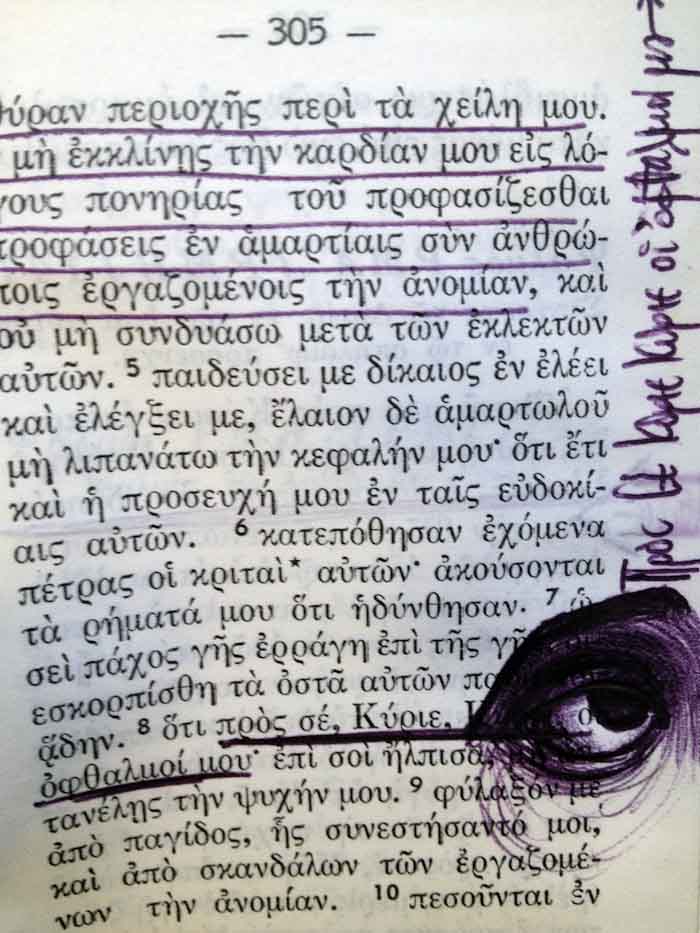 — 305 —
θύραν περιοχῆς περὶ τὰ χείλη μου.
μὴ ἐκκλίνῃς τὴν καρδίαν μου εἰς λό-
γους πονηρίας τοῦ προφασίζεσθαι
προφάσεις ἐν ἁμαρτίαις σὺν ἀνθρώ-
ποις ἐργαζομένοις τὴν ἀνομίαν, καὶ
οὐ μὴ συνδυάσω μετὰ τῶν ἐκλεκτῶν
αὐτῶν. 5 παιδεύσει με δίκαιος ἐν ἐλέει
καὶ ἐλέγξει με, ἔλαιον δὲ ἁμαρτωλοῦ
μὴ λιπανάτω τὴν κεφαλήν μου· ὅτι ἔτι
καὶ ἡ προσευχή μου ἐν ταῖς εὐδοκί-
αις αὐτῶν. 6 κατεπόθησαν ἐχόμενα
πέτρας οἱ κριταὶ* αὐτῶν· ἀκούσονται
τὰ ρήματά μου ὅτι ἡδύνθησαν. 7 ὡ-
σεὶ πάχος γῆς ἐρράγη ἐπὶ τῆς γῆς
εσκορπίσθη τὰ ὀστᾶ αὐτῶν
ᾅδην. 8 ὅτι πρὸς σέ, Κύριε,
ὀφθαλμοί μου· ἐπὶ σοὶ ἤλπισα,
τανέλῃς τὴν ψυχήν μου. 9 φύλαξόν με
ἀπὸ παγίδος, ἧς συνεστήσαντό μοι,
καὶ ἀπὸ σκανδάλων τῶν ἐργαζομέ-
νων τὴν ἀνομίαν. 10 πεσοῦνται ἐν
Πρὸς Σε Κύριε Κύριε οἱ ὀφθαλμοί μου